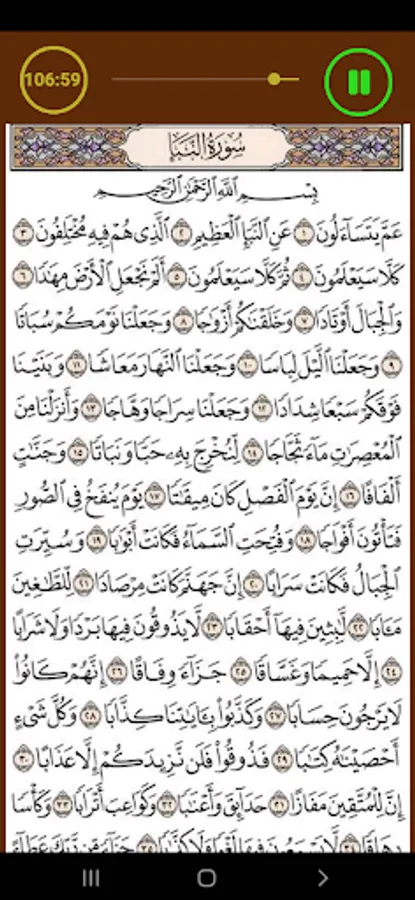 106:59
سُورَةُ النَّبَإِ
بِسْمِ ٱللَّهِ ٱلرَّحْمَٰنِ ٱلرَّحِيمِ
عَمَّ يَتَسَآءَلُونَ ١ عَنِ ٱلنَّبَإِ ٱلْعَظِيمِ ٢ ٱلَّذِى هُمْ فِيهِ مُخْتَلِفُونَ ٣
كَلَّا سَيَعْلَمُونَ ٤ ثُمَّ كَلَّا سَيَعْلَمُونَ ٥ أَلَمْ نَجْعَلِ ٱلْأَرْضَ مِهَٰدًا ٦
وَٱلْجِبَالَ أَوْتَادًا ٧ وَخَلَقْنَٰكُمْ أَزْوَٰجًا ٨ وَجَعَلْنَا نَوْمَكُمْ سُبَاتًا
٩ وَجَعَلْنَا ٱلَّيْلَ لِبَاسًا ١٠ وَجَعَلْنَا ٱلنَّهَارَ مَعَاشًا ١١ وَبَنَيْنَا
فَوْقَكُمْ سَبْعًا شِدَادًا ١٢ وَجَعَلْنَا سِرَاجًا وَهَّاجًا ١٣ وَأَنزَلْنَا مِنَ
ٱلْمُعْصِرَٰتِ مَآءً ثَجَّاجًا ١٤ لِّنُخْرِجَ بِهِۦ حَبًّا وَنَبَاتًا ١٥ وَجَنَّٰتٍ
أَلْفَافًا ١٦ إِنَّ يَوْمَ ٱلْفَصْلِ كَانَ مِيقَٰتًا ١٧ يَوْمَ يُنفَخُ فِى ٱلصُّورِ
فَتَأْتُونَ أَفْوَاجًا ١٨ وَفُتِحَتِ ٱلسَّمَآءُ فَكَانَتْ أَبْوَٰبًا ١٩ وَسُيِّرَتِ
ٱلْجِبَالُ فَكَانَتْ سَرَابًا ٢٠ إِنَّ جَهَنَّمَ كَانَتْ مِرْصَادًا ٢١ لِّلطَّٰغِينَ
مَـَٔابًا ٢٢ لَّٰبِثِينَ فِيهَآ أَحْقَابًا ٢٣ لَّا يَذُوقُونَ فِيهَا بَرْدًا وَلَا شَرَابًا
٢٤ إِلَّا حَمِيمًا وَغَسَّاقًا ٢٥ جَزَآءً وِفَاقًا ٢٦ إِنَّهُمْ كَانُوا۟
لَا يَرْجُونَ حِسَابًا ٢٧ وَكَذَّبُوا۟ بِـَٔايَٰتِنَا كِذَّابًا ٢٨ وَكُلَّ شَىْءٍ
أَحْصَيْنَٰهُ كِتَٰبًا ٢٩ فَذُوقُوا۟ فَلَن نَّزِيدَكُمْ إِلَّا عَذَابًا ٣٠
إِنَّ لِلْمُتَّقِينَ مَفَازًا ٣١ حَدَآئِقَ وَأَعْنَٰبًا ٣٢ وَكَوَاعِبَ أَتْرَابًا ٣٣ وَكَأْسًا
دِهَاقًا ٣٤ لَّا يَسْمَعُونَ فِيهَا لَغْوًا وَلَا كِذَّٰبًا ٣٥ جَزَآءً مِّن رَّبِّكَ عَطَآءً